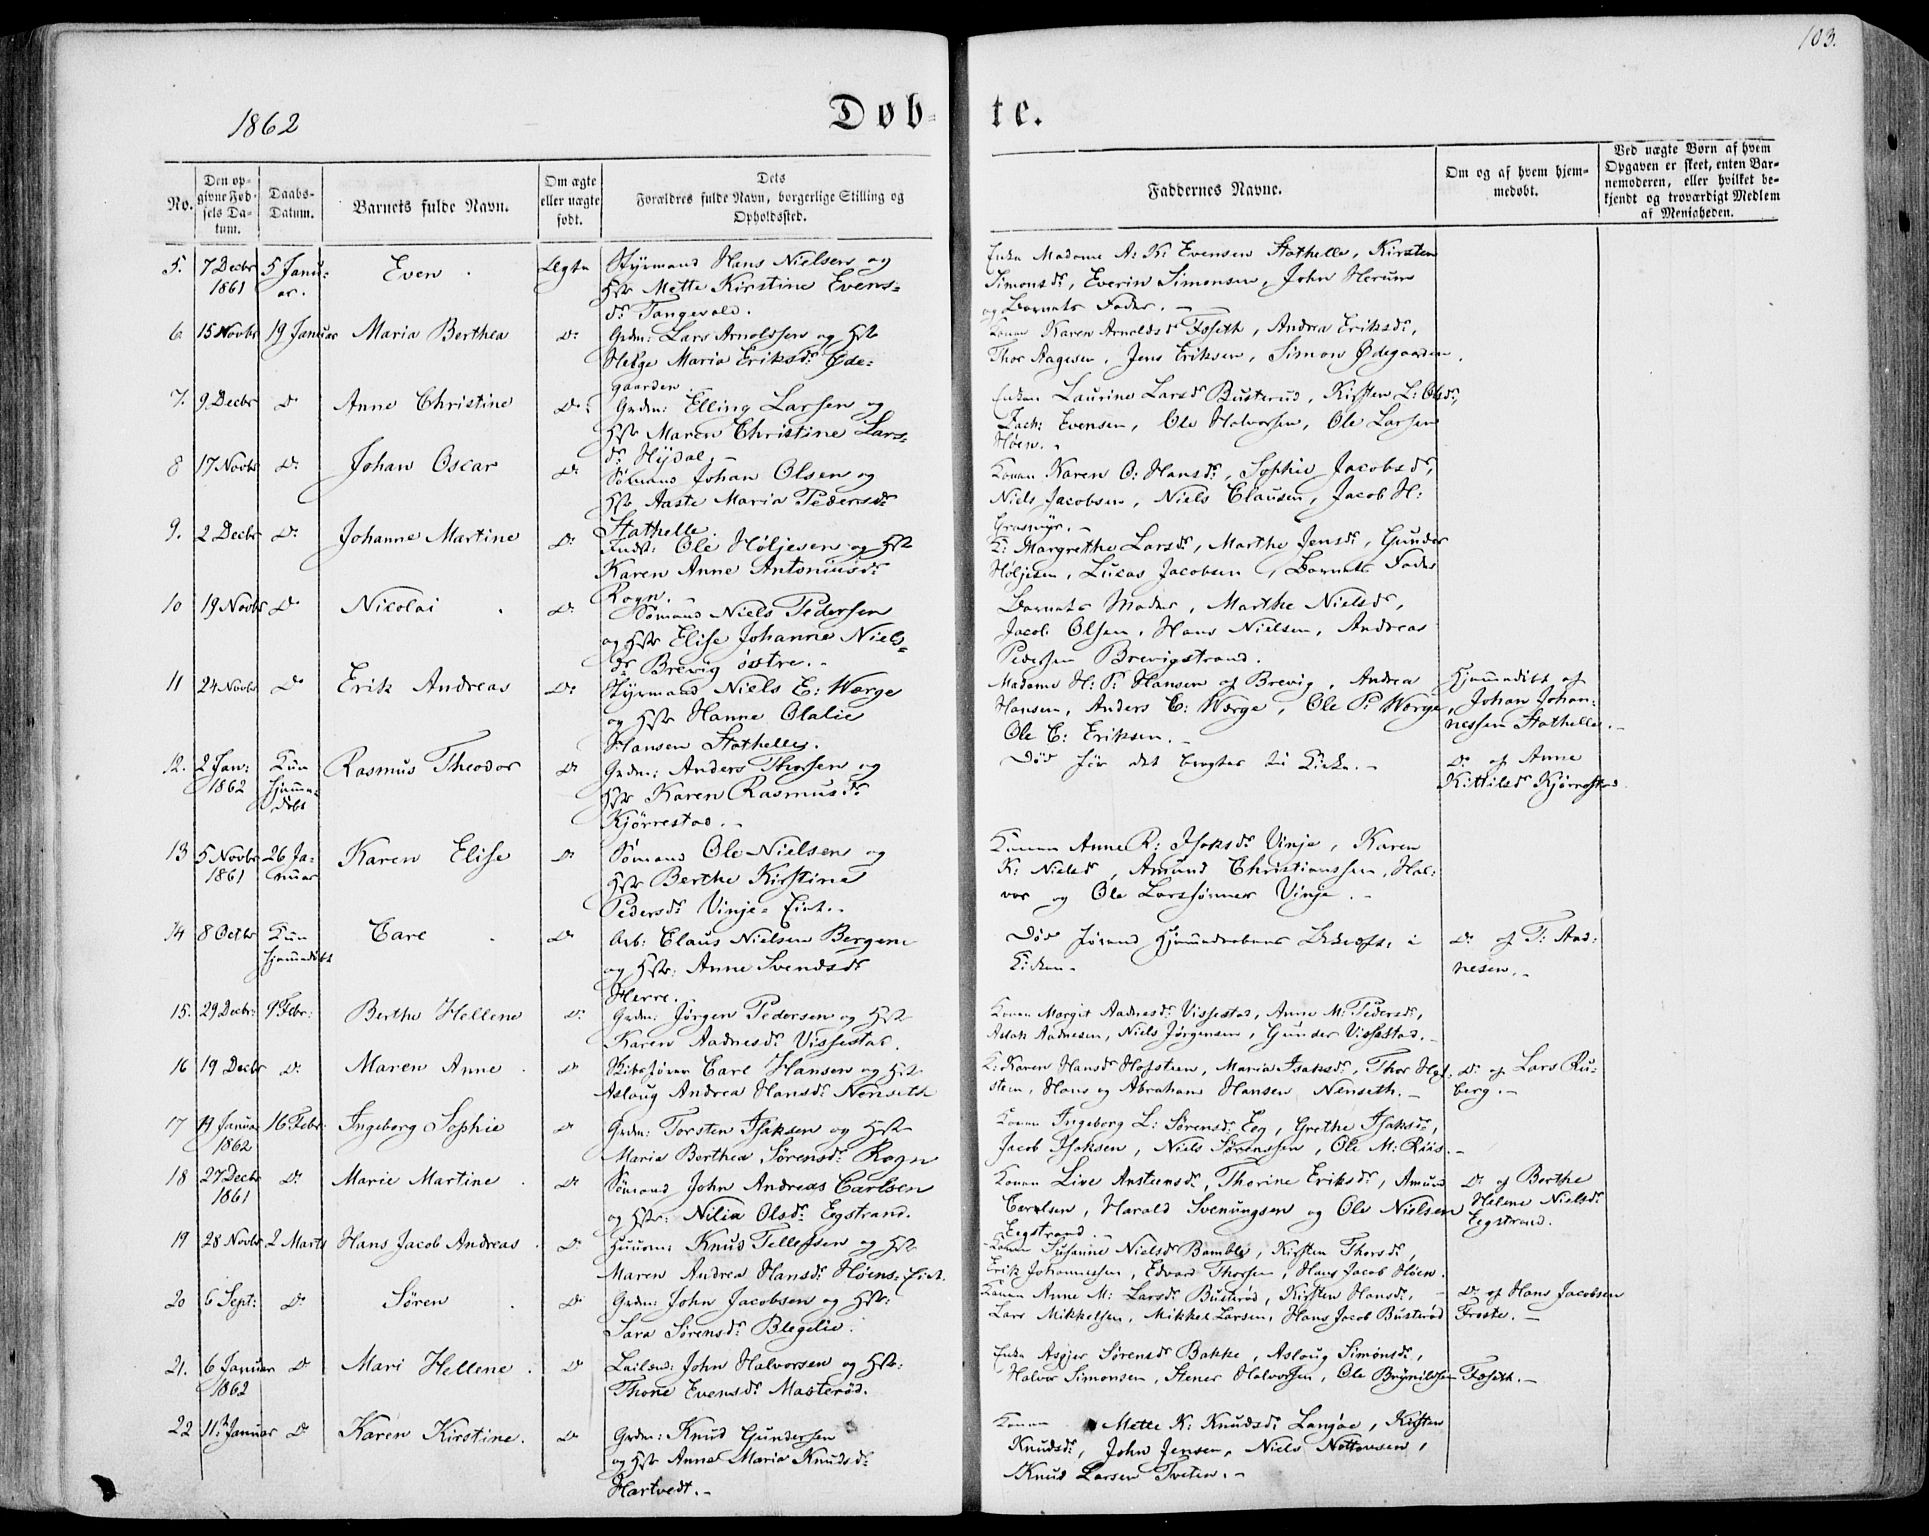 103.
1862
Døb- te.
No.
Den op-
givne Fød-
sels Da-
tum.
Daabs-
Datum.
Barnets fulde Navn.
Om ægte
eller uægte
født.
Dets
Forældres fulde Navn, borgerlige Stilling og
Opholdssted.
Faddernes Navne.
Om og af hvem hjem-
medøbt.
Ved uægte Børn af hvem
Opgaven er skeet, enten Bar-
nemoderen, eller hvilket be-
kjendt og troværdigt Medlem
af Menigheden.
5. 7 Decbr 5 Janu- Even. Ægte Styrmand Hans Nielsen og
1861 ar. Hst Mette Kirstine Evens-
dr Tangevald.
Enke Madame A. K. Evensen Stathelle, Kirsten
Simonsdr, Everin Simonsen, John Herum
og Barnets Fader. –
6 15 Novbr 19 Januar Maria Berthea Do Grdm: Lars Arnoldsen og Hst
Helge Maria Eriksdr Øde-
gaarden
Konen Karen Arnoldsdr Fosseth, Andrea Eriksdr,
Thor Aagesen, Jens Eriksen, Simon Ødegaarden.
7. 9 Decbr Do Anne Christine Do Grdm: Elling Larsen og
Hst Maren Christine Lars-
dr Hydal.
Enken Laurine Larsdr Busterud, Kirsten L: Olsdr,
Zach: Evensen, Ole Halvorsen, Ole Larsen
Høen. –
8 17 Novbr Do Johan Oscar Do Sømand Johan Olsen og
Hst Aaste Maria Pedersdr
Stathelle.
Konen Karen O: Hansdr, Sophie Jacobsdr,
Niels Jacobsen, Niels Clausen, Jacob H:
Grasmyr. –
9. 2 Decbr Do Johanne Martine Do Indst: Ole Høljesen og Hst
Karen Anne Antoniusdr
Rogn.
K: Margrethe Larsdr, Marthe Jensdr, Gunder
Høljesen, Lucas Jacobsen, Barnets Fader
10 19 Novbr Do Nicolai Do Sømand Niels Pedersen
og Hst Elise Johanne Niels-
dr Brevig østre. –
Barnets Moder, Marthe Nielsdr,
Jacob Olsen, Hans Nielsen, Andreas
Pedersen Brevigstrand.
11 24 Novbr Do Erik Andreas Do Styrmand Niels E: Wærge
og Hst Hanne Olalie
Hansen Stathelle.
Madame H. P. Hansen af Brevig, Andrea
Hansen, Anders E: Wærge, Ole P: Wærge,
Ole E: Eriksen. –
Hjemmedøbt af
Johan Johan-
nessen Stathelle. –
12. 2 Jan: Kun Rasmus Theodor Do Grdm: Anders Thorsen og
1862 hjemme- Hst Karen Rasmusdr
døbt Kjørrestad. –
Død før det bragtes til Kirke. –
Do af Anne
Kittilsdr Kjørrestad.
13 5 Novbr 26 Ja- Karen Elise Do Sømand Ole Nielsen og
1861 nuar Hst Berthe Kirstine
Pedersdr Vinje-Eiet. –
Konen Anne R: Isaksdr Vinje, Karen
K: Nielsdr, Amund Christianssen, Hal-
vor og Ole Larssønner Vinje. –
14 8 Octbr Kun Carl Do Arb: Claus Nielsen Bergene
hjemmedøbt og Hst: Anne Svendsdr
Herre.
Død førend Hjemmedaabens i
Kirken –
Do af T: Aad-
nesen. –
15. 29 Decbr: 9 Febr: Berthe Hellene Do Grdm: Jørgen Pedersen og Hst
Karen Aadnesdr Vissestad.
Konen Margit Aadnesdr Vissestad, Anne M: Pedersdr,
Aslak Aadnesen, Niels Jørgensen, Gunder Vissestad. –
16 19 Decbr Do Maren Anne Do Skibsfører Carl Hansen og Hst
Aslaug Andrea Hansdr Nenseth
K: Karen Hansdr Hofsten, Maria Isaksdr, Thor Hof-
sten, Hans og Abraham Hansen Nenseth. –
Do af Lars Ru-
berg. –
17 19 Januar 16 Febr: Ingeborg Sophie Do Grdm: Torsten Isaksen og Hst
1862 Maria Berthea Sørensdr Rogn
Konen Ingeborg L: Sørensdr Eeg, Grethe Isaksdr,
Jacob Isaksen, Niels Sørenssen, Ole M: Røås. –
18 27 Decbr Do Marie Martine Do Sømand John Andreas Carlsen
1861 og Hst: Nilia Olsdr Eegstrand.
Konen Live Anstensdr, Thorine Eriksdr, Amund
Carlsen, Harald Svenungsen og Ole Nielsen
Eegstrand. –
Do af Berthe
Helene Nielsdr
Eegstrand.
19 28 Novbr 2 Marts Hans Jacob Andreas Do Huusm: Knud Tellefsen og Hst
Maren Andrea Hansdr Høens-Eiet.
Konen Susanne Nielsdr Bamble, Kirsten Thorsdr,
Erik Johannessen, Edvard Thorsen, Hans Jacob Høen.
20 6 Sept: Do Søren Do Grdm: John Jacobsen og Hst:
Sara Sørensdr Blegelie.
Konen Anne M: Larsdr Busterød, Kirsten Hansdr,
Lars Mikkelsen, Mikkel Larsen, Hans Jacob Busterød
Do af Hans Jacobsen
Froste. –
21. 6 Januar Do Mari Hellene. Do Leilænd: John Halvorsen og Hst:
1862 Thone Evensdr Masterød.
Enke Asgjer Sørensdr Bakke, Aslaug Simonsdr,
Halvor Simonsen, Stener Halvorsen, Ole Brynildsen Fosseth. –
22 11 Januar Do Karen Kirstine. Do Grdm: Knud Gundersen
og Hst Anne Maria Knudsdr
Hartvedt. –
Konen Mette K: Knudsdr Langøe, Kirsten
Knudsdr, John Jensen, Niels Nottovsen,
Knud Larsen Tveten. –